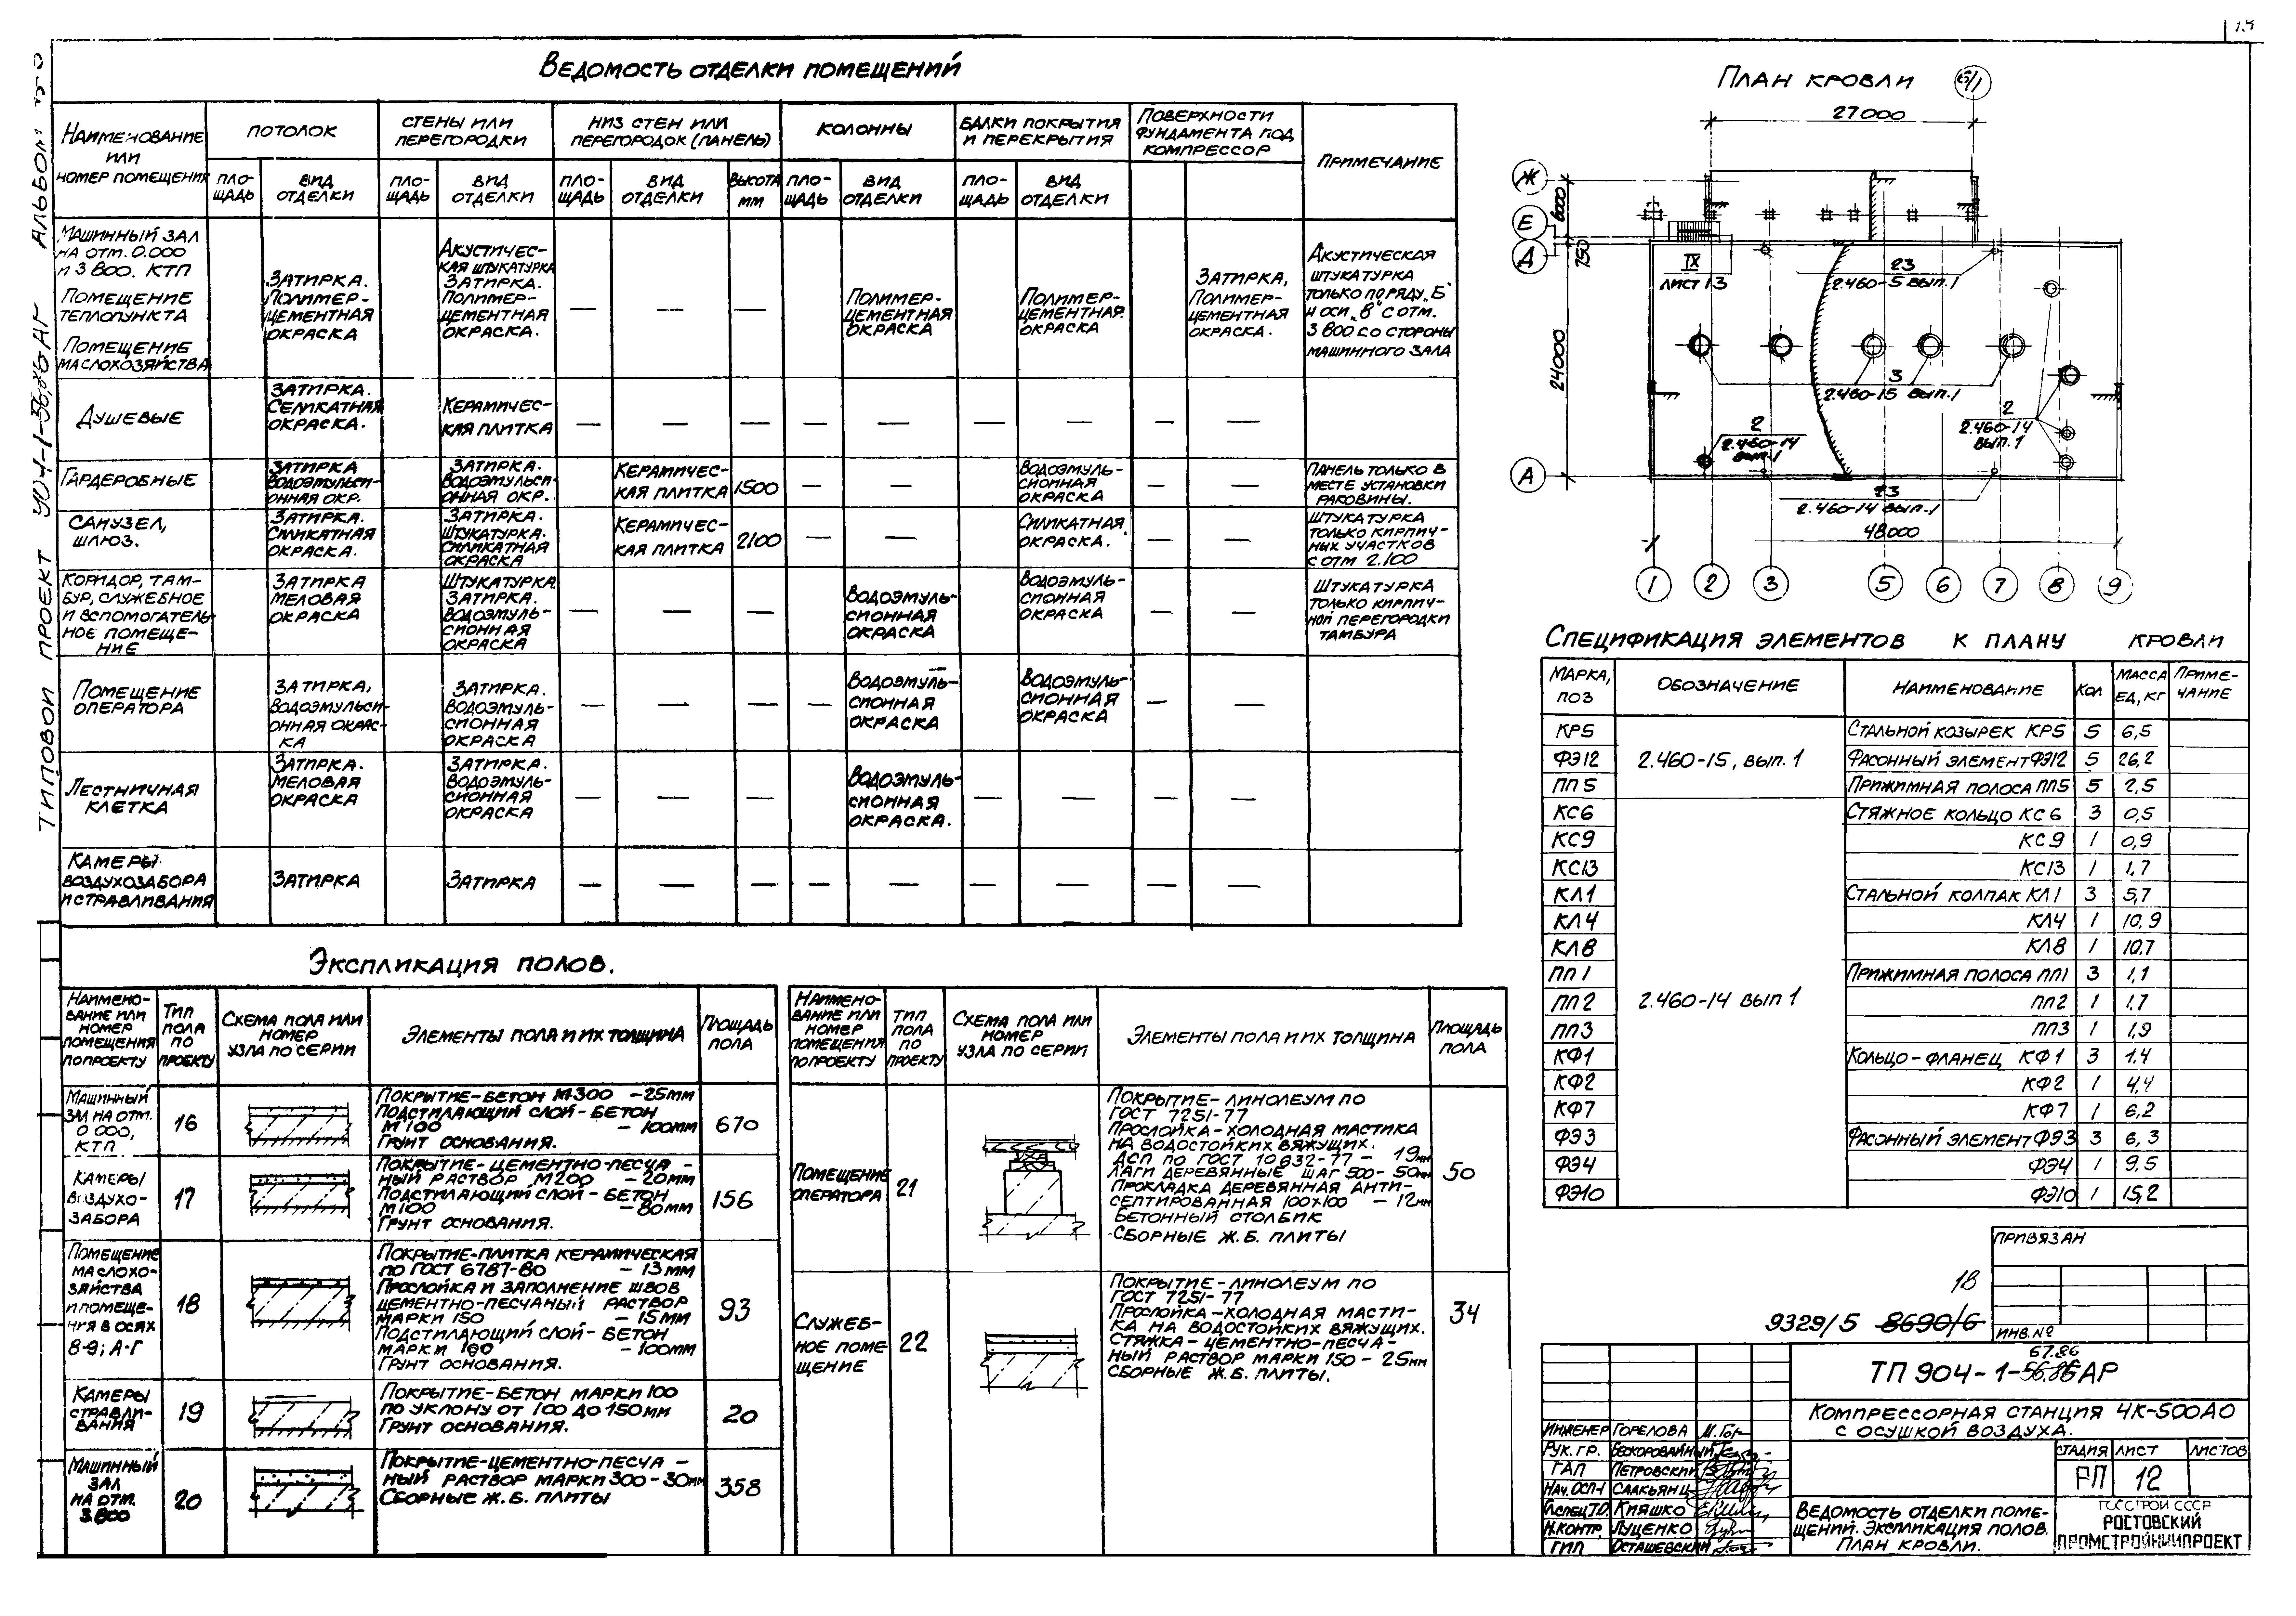 Ведомость отделки помещений
Наименование или номер помещения
Потолок
Стены или перегородки
Низ стен или перегородок (панель)
Колонны
Балки покрытия и перекрытия
Поверхности фундамента под компрессор
Примечание
площадь
вид отделки
площадь
вид отделки
площадь
вид отделки
высота мм
площадь
вид отделки
площадь
вид отделки
Машинный зал на отм. 0.000 и 3.800. КТП
Помещение теплопункта
Помещение маслохозяйства
Затирка. Полимерцементная окраска
Акустическая штукатурка Затирка. Полимерцементная окраска.
— — —
Полимерцементная окраска
Полимерцементная окраска
Затирка, Полимерцементная окраска.
Акустическая штукатурка только по ряду „Б" и оси „8" с отм. 3.800 со стороны машинного зала
Душевые
Затирка. Селикатная окраска.
Керамическая плитка
— — — — — — — — —
Гардеробные
Затирка Водоэмульсионная окр.
Затирка. Водоэмульсионная окр.
Керамическая плитка
1500
— —
Водоэмульсионная окраска
— —
Панель только в месте установки раковины.
Санузел, шлюз.
Затирка. Силикатная окраска.
Затирка. Штукатурка. Силикатная окраска
Керамическая плитка
2100
— —
Силикатная окраска.
— —
Штукатурка только кирпичных участков с отм 2.100
Коридор, тамбур, служебное и вспомогательное помещение
Затирка меловая окраска
Штукатурка Затирка. Водоэмульсионная окраска
— — —
Водоэмульсионная окраска
Водоэмульсионная окраска
— —
Штукатурка только кирпичной перегородки тамбура
Помещение оператора
Затирка, Водоэмульсионная окраска
Затирка. Водоэмульсионная окраска
— — —
Водоэмульсионная окраска
Водоэмульсионная окраска
— —
Лестничная клетка
Затирка. Меловая окраска
Затирка. Водоэмульсионная окраска
— — —
Водоэмульсионная окраска.
— — — —
Камеры воздухозабора и стравливания
Затирка
Затирка
— — — — — — — — —
Экспликация полов.
Наименование или номер помещения по проекту
Тип пола по проекту
Схема пола или номер узла по серии
Элементы пола и их толщина
Площадь пола
Машинный зал на отм. 0 000, КТП
16
Покрытие-бетон М300 -25мм
Подстилающий слой-бетон
М100 -100мм
Грунт основания.
670
Камеры воздухозабора
17
Покрытие-цементно-песча-
ный раствор М200 -20мм
Подстилающий слой-бетон
М100 -80мм
Грунт основания.
156
Помещение маслохозяйства и помещения в осях 8-9; А-Г
18
Покрытие-плитка керамическая
по ГОСТ 6787-80 -13мм
Прослойка и заполнение швов
цементно-песчаный раствор
марки 150 -15мм
Подстилающий слой-бетон
марки 100 -100мм
Грунт основания.
93
Камеры стравливания
19
Покрытие-бетон марки 100
по уклону от 100 до 150мм
Грунт основания.
20
Машинный зал на отм. 3.800
20
Покрытие-цементно-песча-
ный раствор марки 300-30мм
Сборные ж.б. плиты
358
Наименование или номер помещения по проекту
Тип пола по проекту
Схема пола или номер узла по серии
Элементы пола и их толщина
Площадь пола
Помещение оператора
21
Покрытие-линолеум по
ГОСТ 7251-77
Прослойка-холодная мастика
на водостойких вяжущих.
ДСП по ГОСТ 10632-77 - 19мм
Лаги деревянные шаг 500-50мм
Прокладка деревянная анти-
септированная 100х100 - 12мм
Бетонный столбик
Сборные ж.б. плиты
50
Служебное помещение
22
Покрытие-линолеум по
ГОСТ 7251-77
Прослойка-холодная масти-
ка на водостойких вяжущих.
Стяжка-цементно-песча-
ный раствор марки 150-25мм
Сборные ж.б. плиты.
34
План кровли
27000
Ж
Е
Д
А
6000
750
24000
IX
лист 13
23
2.460-5 вып.1
3
2.460-15 вып.1
2
2.460-14
вып.1
2
2.460-14
вып.1
23
2.460-14 вып.1
48000
1 2 3 5 6 7 8 9
Спецификация элементов к плану кровли
Марка, поз
Обозначение
Наименование
Кол
Масса ед, кг
Примечание
КР5 2.460-15, вып. 1 Стальной козырек КР5 5 6,5
ФЭ12 Фасонный элемент ФЭ12 5 26,2
ПП5 Прижимная полоса ПП5 5 2,5
КС6 2.460-14 вып 1 Стяжное кольцо КС6 3 0,5
КС9 КС9 1 0,9
КС13 КС13 1 1,7
КЛ1 Стальной колпак КЛ1 3 5,7
КЛ4 КЛ4 1 10,9
КЛ8 КЛ8 1 10.7
ПП1 Прижимная полоса ПП1 3 1,1
ПП2 ПП2 1 1,7
ПП3 ПП3 1 1,9
КФ1 Кольцо-фланец КФ1 3 1.4
КФ2 КФ2 1 4,4
КФ7 КФ7 1 6,2
ФЭ3 Фасонный элемент ФЭ3 3 6,3
ФЭ4 ФЭ4 1 9.5
ФЭ10 ФЭ10 1 15,2
Привязан
Инв.№
18
9329/5 8690/6
57.86
ТП 904-1-56.86 АР
Компрессорная станция 4К-500АО
с осушкой воздуха.
Стадия Лист Листов
РП 12
Инженер Горелова
Рук. гр. Бескоровайный
ГАП Петровский
Нач. ОСП-1 Саакьянц
Кияшко
Н.контр. Луценко
ГИП Осташевский
Ведомость отделки поме-
щений. Экспликация полов.
План кровли.
Госстрой СССР
Ростовский
Промстройниипроект
Типовой проект 904-1-56.86 АР - Альбом